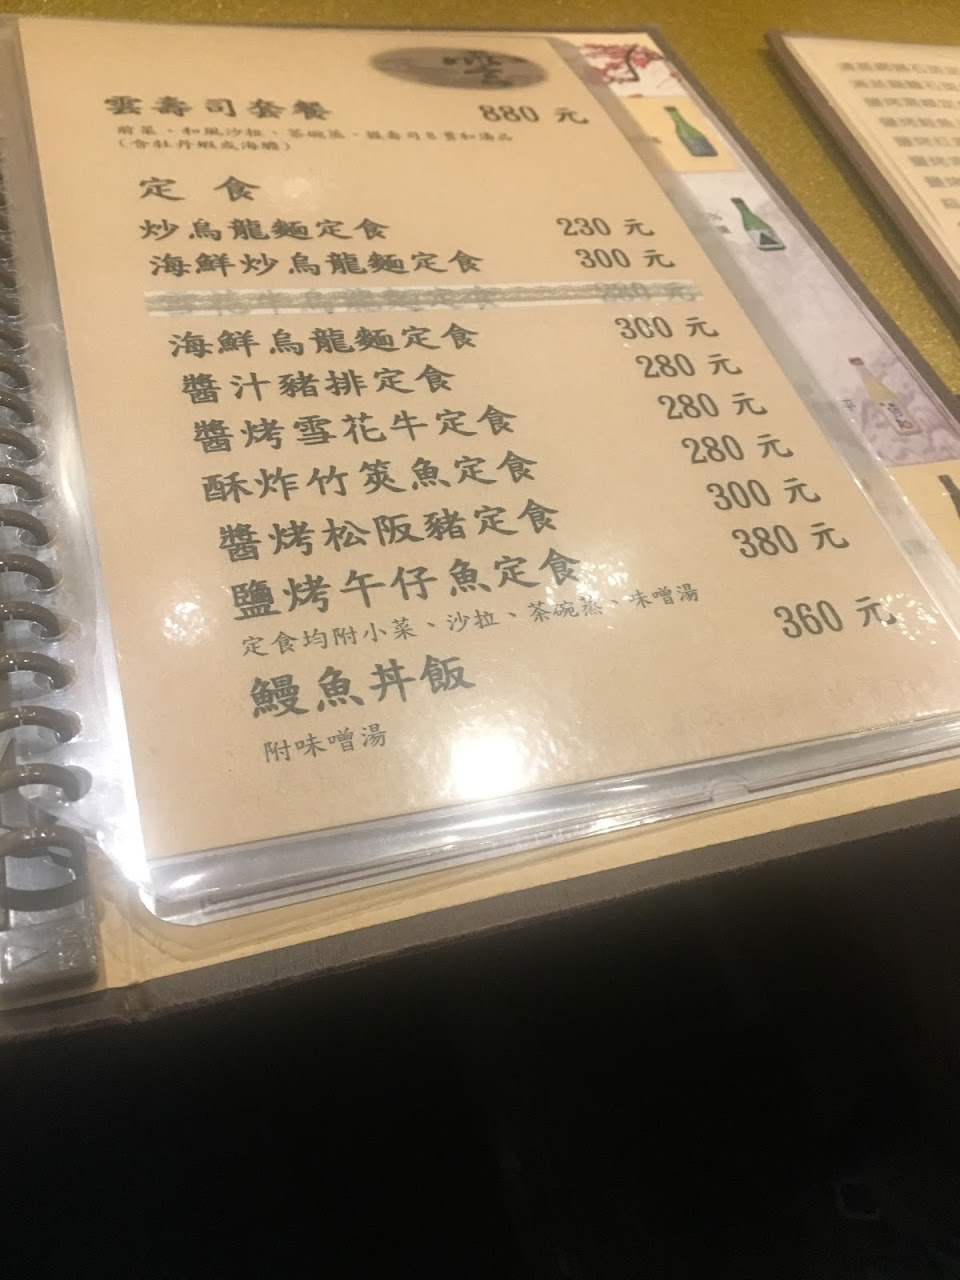 雲
雲壽司套餐 880 元
前菜、和風沙拉、茶碗蒸、握壽司8貫和湯品
(含牡丹蝦或海膽)
定 食
炒烏龍麵定食 230 元
海鮮炒烏龍麵定食 300 元
海鮮烏龍麵定食 300 元
醬汁豬排定食 280 元
醬烤雪花牛定食 280 元
酥炸竹筴魚定食 280 元
醬烤松阪豬定食 300 元
鹽烤午仔魚定食 380 元
定食均附小菜、沙拉、茶碗蒸、味噌湯
鰻魚丼飯 360 元
附味噌湯